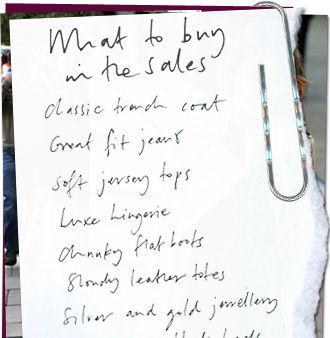 What to buy
in the sales
Classic trench coat
Great fit jeans
Soft jersey tops
Luxe lingerie
Chunky flat boots
Slouchy leather totes
Silver and gold jewellery